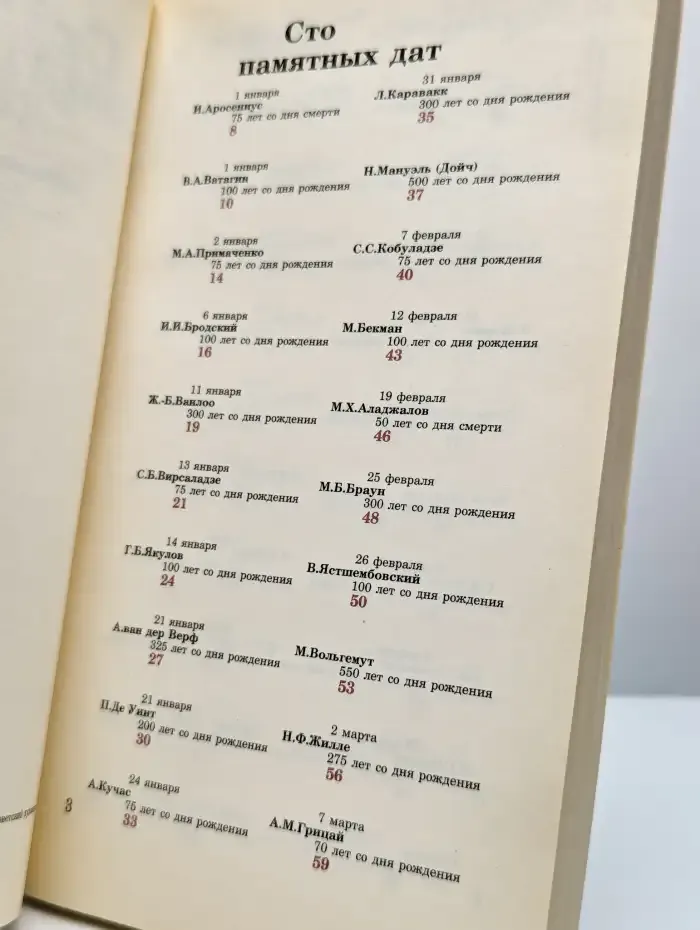 Сто
памятных дат
1 января
И.Аросениус
75 лет со дня смерти
8
1 января
В.А.Ватагин
100 лет со дня рождения
10
2 января
М.А.Примаченко
75 лет со дня рождения
14
6 января
И.И.Бродский
100 лет со дня рождения
16
11 января
Ж.-Б.Ванлоо
300 лет со дня рождения
19
13 января
С.Б.Вирсаладзе
75 лет со дня рождения
21
14 января
Г.Б.Якулов
100 лет со дня рождения
24
21 января
А.ван дер Верф
325 лет со дня рождения
27
21 января
П.Де Уинт
200 лет со дня рождения
30
24 января
А.Кучас
75 лет со дня рождения
33
31 января
Л.Каравакк
300 лет со дня рождения
35
Н.Мануэль (Дойч)
500 лет со дня рождения
37
7 февраля
С.С.Кобуладзе
75 лет со дня рождения
40
12 февраля
М.Бекман
100 лет со дня рождения
43
19 февраля
М.Х.Аладжалов
50 лет со дня смерти
46
25 февраля
М.Б.Браун
300 лет со дня рождения
48
26 февраля
В.Ястшембовский
100 лет со дня рождения
50
М.Вольгемут
550 лет со дня рождения
53
2 марта
Н.Ф.Жилле
275 лет со дня рождения
56
7 марта
А.М.Грицай
70 лет со дня рождения
59
3